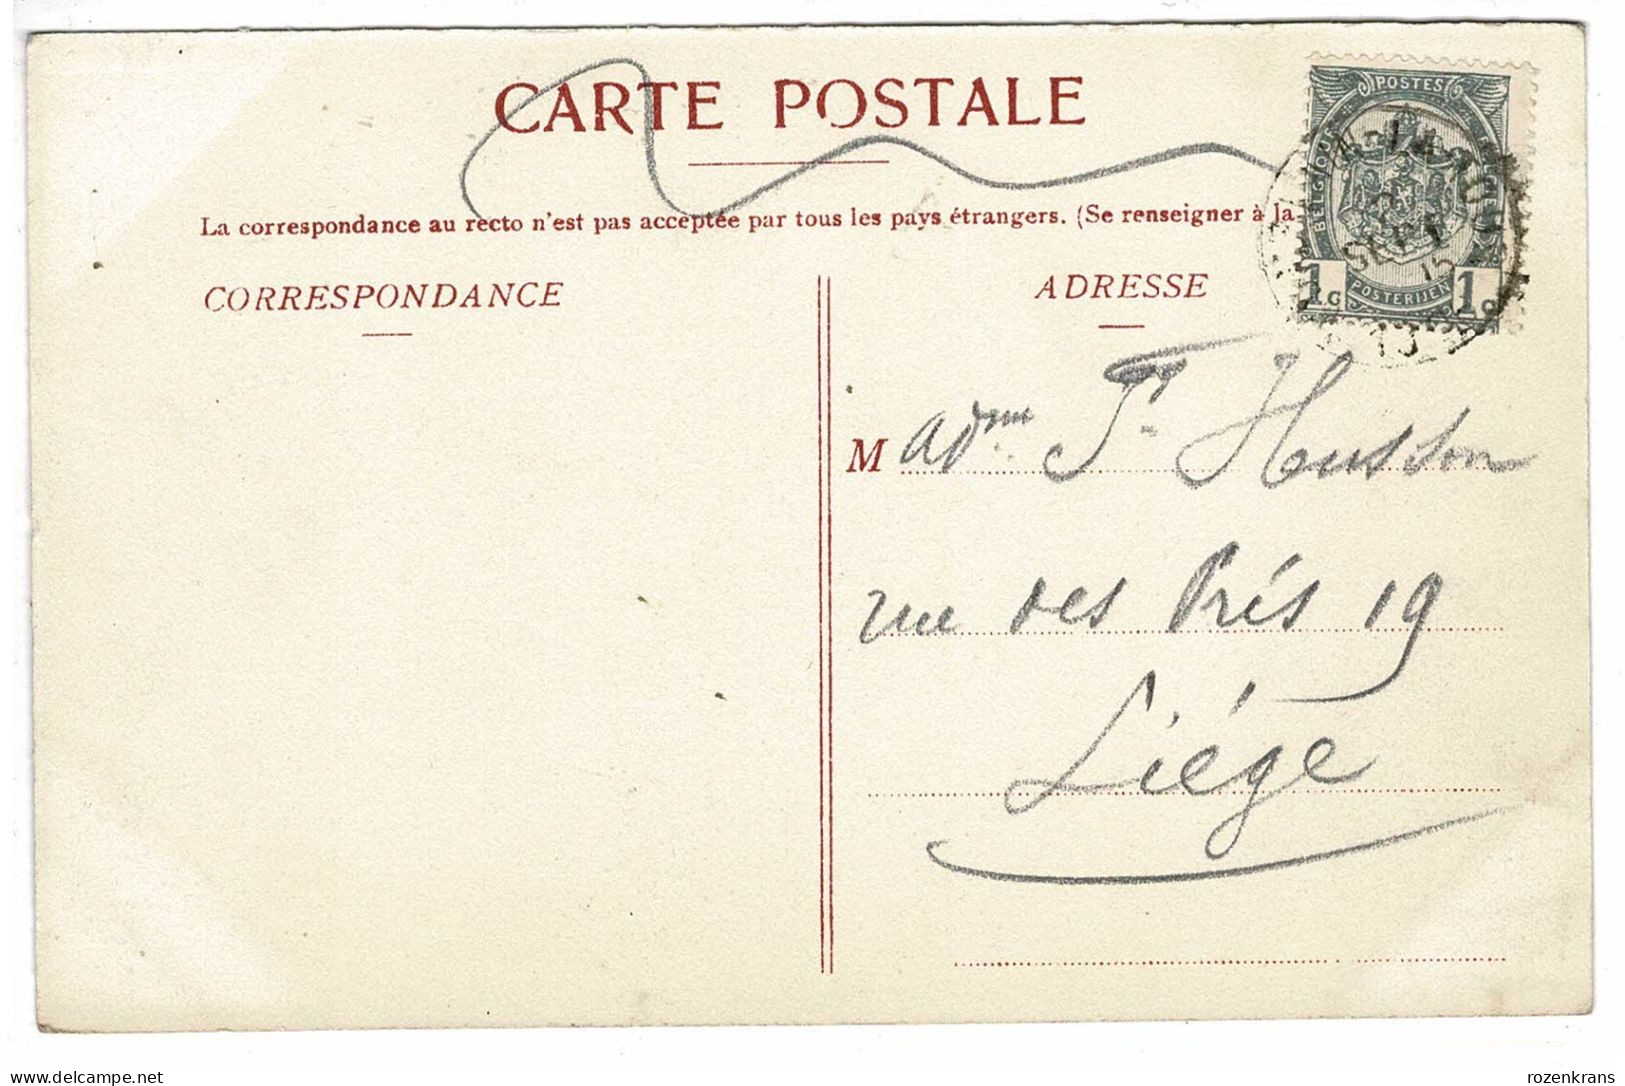 CARTE POSTALE
La correspondance au recto n'est pas acceptée par tous les pays étrangers. (Se renseigner à la
POSTES
BELGIQUE
SEPT
15
1c POSTERIJEN 1c
CORRESPONDANCE
ADRESSE
Madme Husson
rue des Prés 19
Liége
delcampe.net
rozenkrans